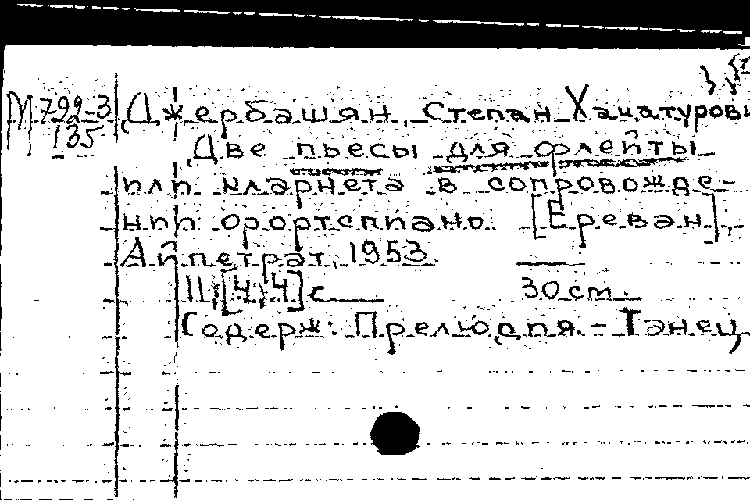 М 799-3 Джербашян, Степан Хачатурови
135
Две пьесы для флейты
или кларнета в сопровожде-
нии фортепиано. [Ереван],
Айпетрат, 1953.
11, [4,4] с. 30 см.
Содерж: Прелюдия. - Танец